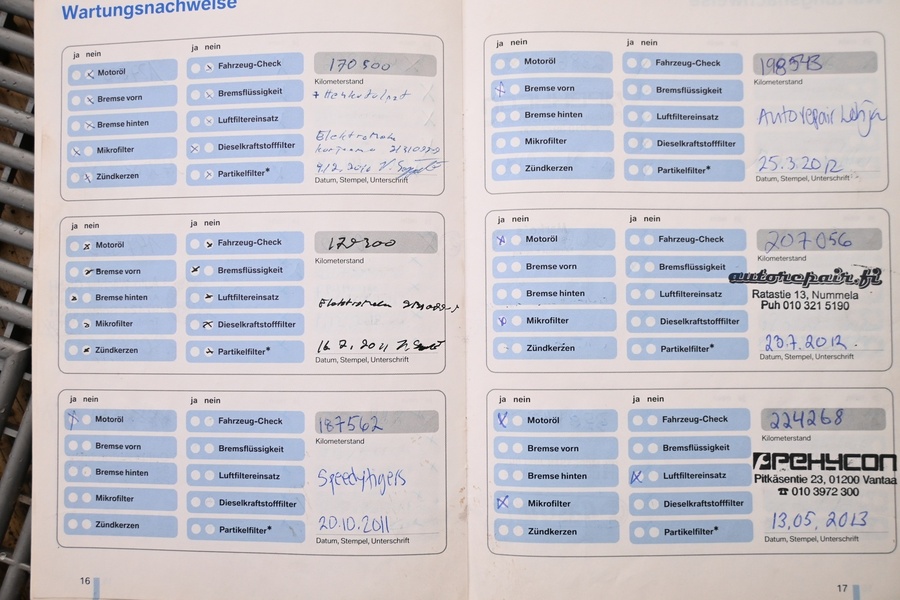 Wartungsnachweise
ja nein
ja nein
Motoröl
Fahrzeug-Check
170 500
Bremse vorn
Bremsflüssigkeit
Kilometerstand
Bremse hinten
Luftfiltereinsatz
Mikrofilter
Dieselkraftstofffilter
Zündkerzen
Partikelfilter*
Datum, Stempel, Unterschrift
ja nein
ja nein
Motoröl
Fahrzeug-Check
Bremse vorn
Bremsflüssigkeit
Kilometerstand
Bremse hinten
Luftfiltereinsatz
Mikrofilter
Dieselkraftstofffilter
Zündkerzen
Partikelfilter*
16 2. 2011
Datum, Stempel, Unterschrift
ja nein
ja nein
Motoröl
Fahrzeug-Check
187562
Bremse vorn
Bremsflüssigkeit
Kilometerstand
Bremse hinten
Luftfiltereinsatz
Speedytigers
Mikrofilter
Dieselkraftstofffilter
Zündkerzen
Partikelfilter*
20.10.2011
Datum, Stempel, Unterschrift
16
ja nein
ja nein
Motoröl
Fahrzeug-Check
198543
Bremse vorn
Bremsflüssigkeit
Kilometerstand
Bremse hinten
Luftfiltereinsatz
Autorepair
Mikrofilter
Dieselkraftstofffilter
Zündkerzen
Partikelfilter*
25.3.2012
Datum, Stempel, Unterschrift
ja nein
ja nein
Motoröl
Fahrzeug-Check
207056
Bremse vorn
Bremsflüssigkeit
Kilometerstand
autorepair.fi
Bremse hinten
Luftfiltereinsatz
Ratastie 13, Nummela
Puh 010 321 5190
Mikrofilter
Dieselkraftstofffilter
Zündkerzen
Partikelfilter*
20.7.2012.
Datum, Stempel, Unterschrift
ja nein
ja nein
Motoröl
Fahrzeug-Check
224268
Bremse vorn
Bremsflüssigkeit
Kilometerstand
Bremse hinten
Luftfiltereinsatz
Pitkäsentie 23, 01200 Vantaa
☎ 010 3972 300
Mikrofilter
Dieselkraftstofffilter
Zündkerzen
Partikelfilter*
13.05. 2013
Datum, Stempel, Unterschrift
17